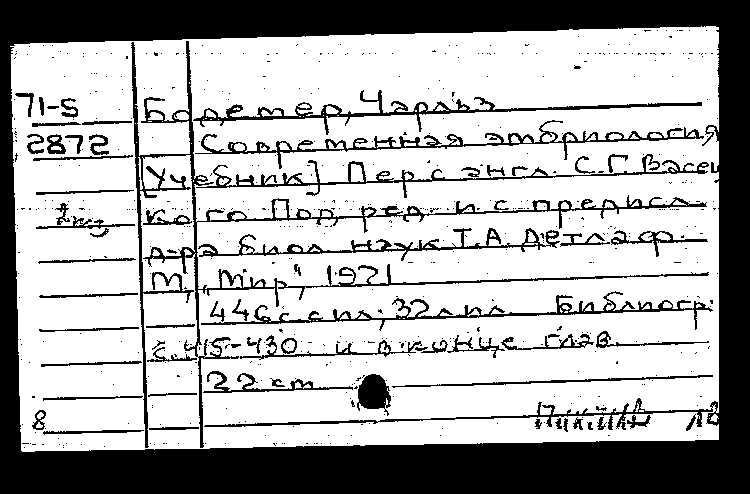 71-5 Бодемер, Чарльз
2872 Современная эмбриология
[Учебник] Пер с англ. С.Г. Васец
кого Под ред. и с предисл.
д-ра биол наук Т.А. Детлаф.
М, „Мир", 1971
446с с ил; 32 л ил. Библиогр:
с. 415-430 и в конце глав.
22 cm
8